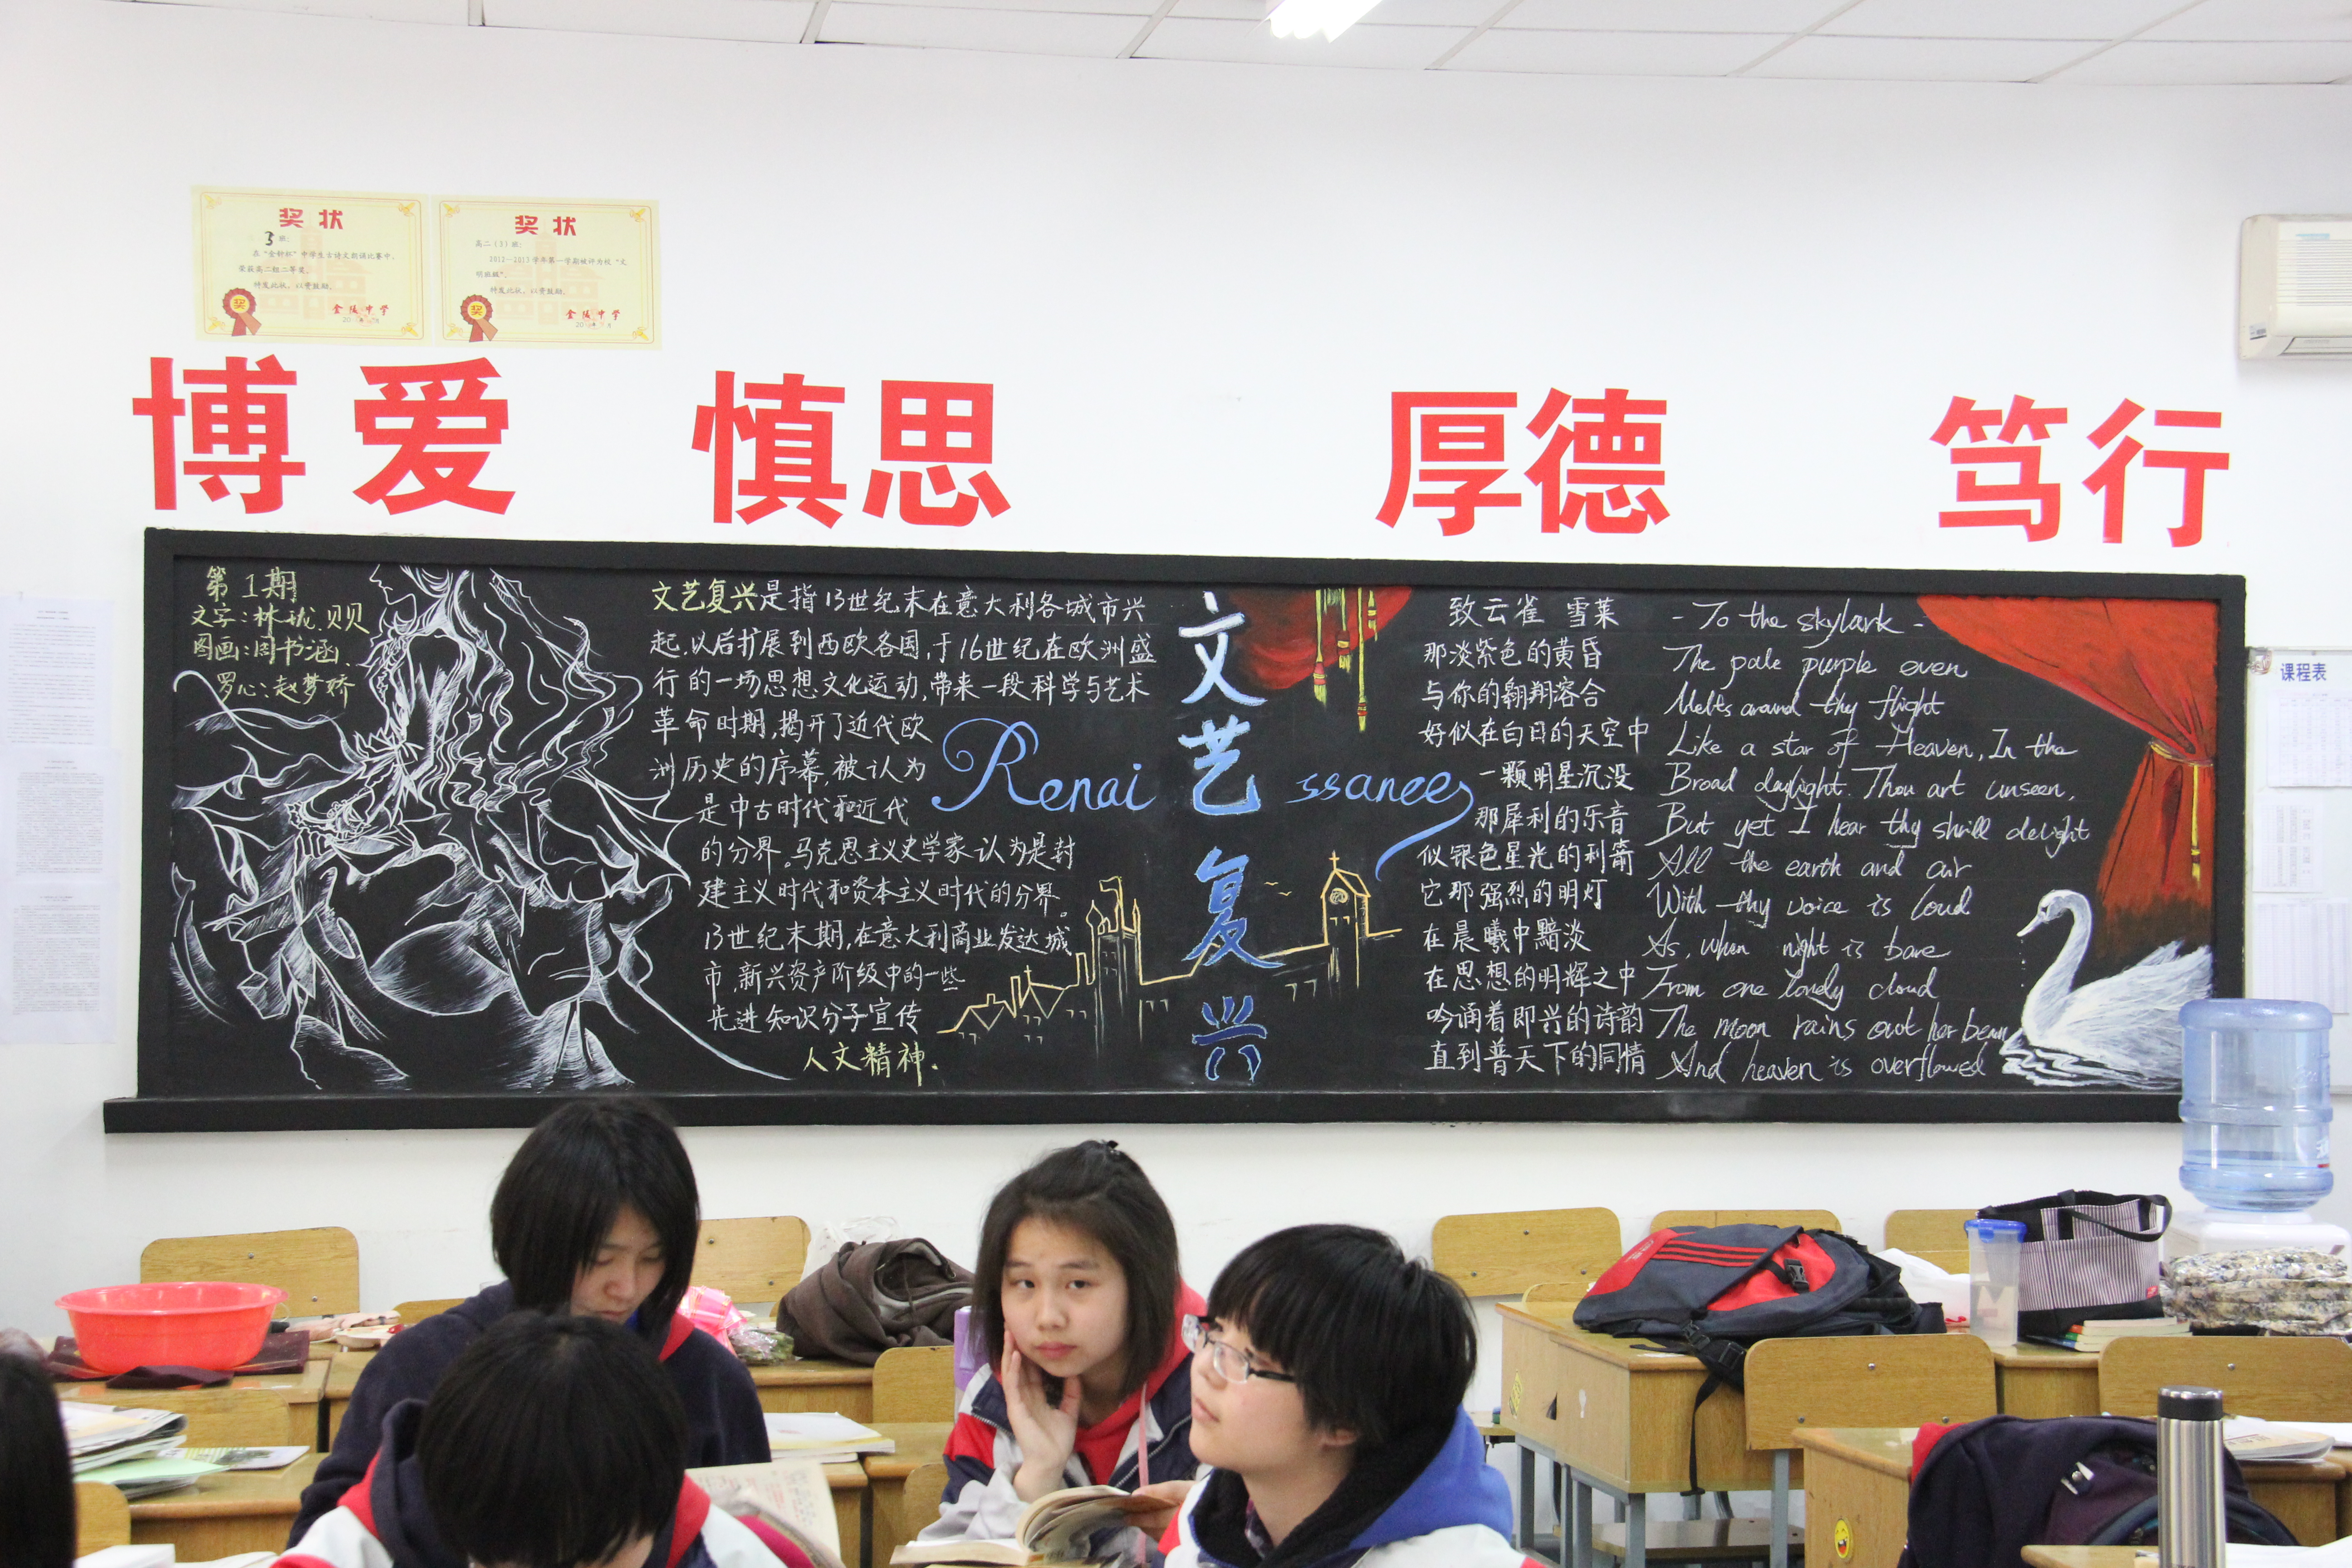 奖状
3 班:
在"金钟杯"中学生古诗文朗诵比赛中,
荣获高二组二等奖。
特发此状,以资鼓励。
奖
金陵中学
奖状
高二(3)班:
2012—2013学年第一学期被评为校"文
明班级"。
特发此状,以资鼓励。
奖
金陵中学
博爱 慎思 厚德 笃行
第1期
文字:林珑.贝贝
图画:周书涵.
罗心:赵梦娇
文艺复兴是指13世纪末在意大利各城市兴
起.以后扩展到西欧各国,于16世纪在欧洲盛
行的一场思想文化运动,带来一段科学与艺术
革命时期,揭开了近代欧
洲历史的序幕,被认为
是中古时代和近代
的分界。马克思主义史学家认为是封
建主义时代和资本主义时代的分界。
13世纪末期,在意大利商业发达城
市,新兴资产阶级中的一些
先进知识分子宣传
人文精神.
Renai ssance
文艺复兴
致云雀 雪莱
那淡紫色的黄昏
与你的翱翔溶合
好似在白日的天空中
一颗明星沉没
那犀利的乐音
似银色星光的利箭
它那强烈的明灯
在晨曦中黯淡
在思想的明辉之中
吟诵着即兴的诗韵
直到普天下的同情
- To the skylark -
The pale purple even
Melts around thy flight
Like a star of Heaven, In the
Broad daylight. Thou art unseen,
But yet I hear thy shrill delight
All the earth and air
With thy voice is loud
As, when night is bare
From one lonely cloud
The moon rains out her beam
And heaven is overflowed
课程表